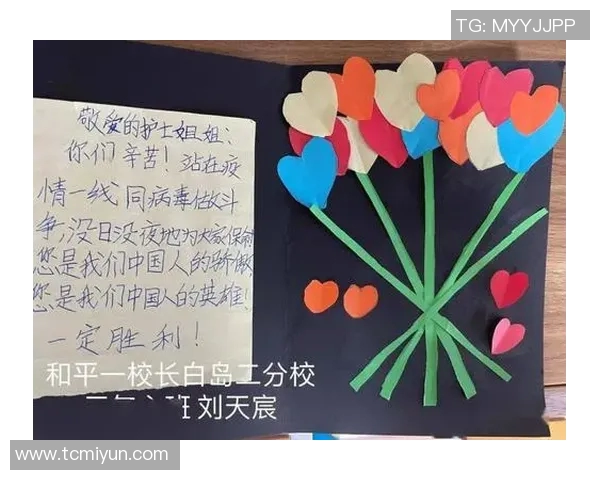 TG: MYYJJPP
敬爱的护士姐姐：
你们辛苦！站在疫
情一线同病毒做斗
争,没日没夜地为大家保命
您是我们中国人的骄傲,
您是我们中国人的英雄!
一定胜利！
和平一校长白岛二分校
班 刘天宸
www.tcmiyun.com